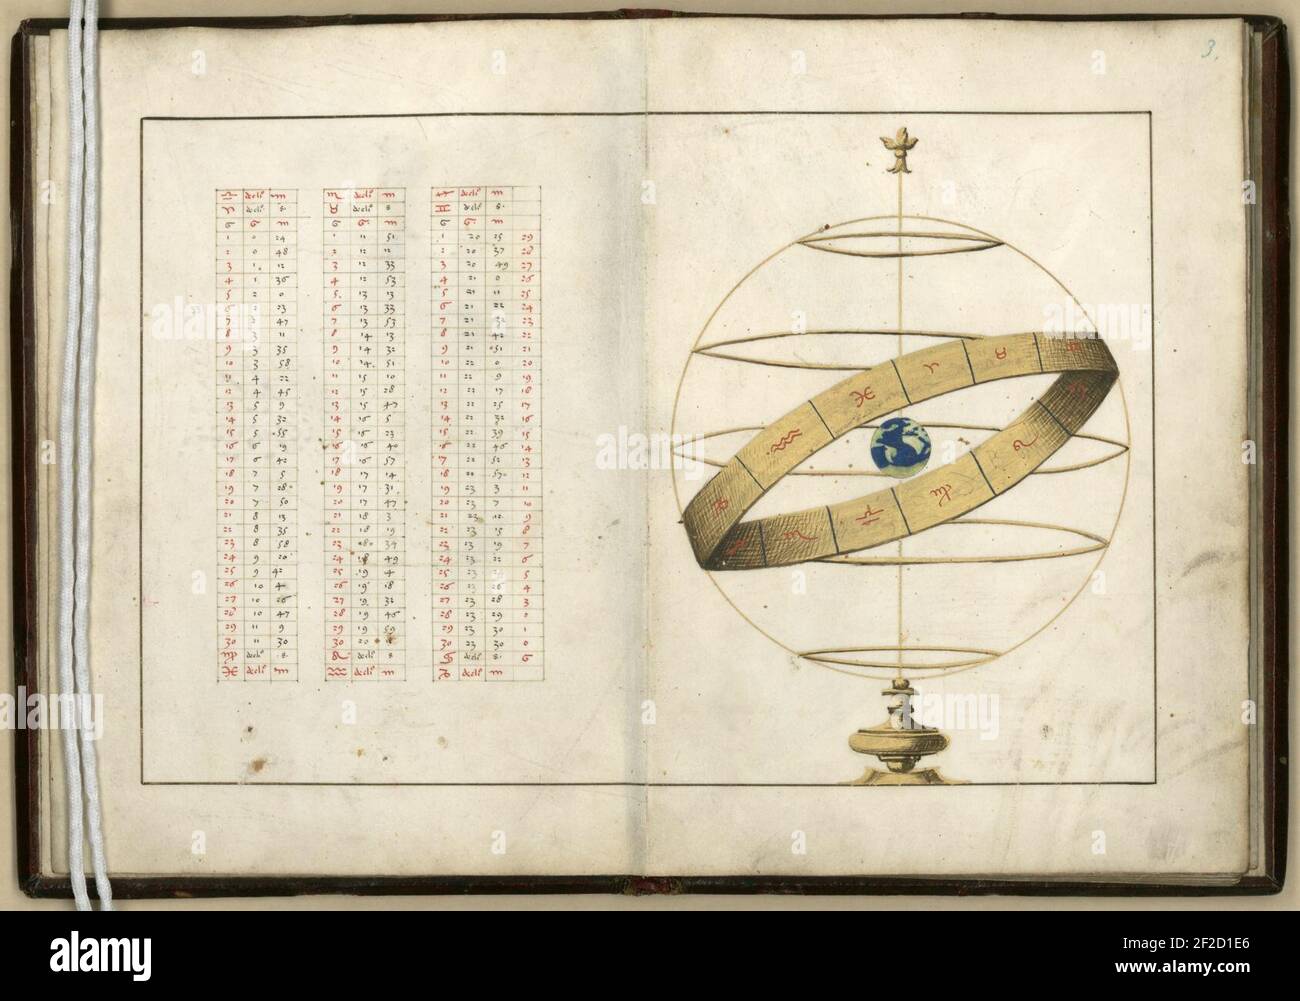 3.
♎ decli° m ♏ decli° m ♐ decli° m
♈ decli° s. ♉ decli° s ♊ decli° s.
G G m G G. m G G. m
1 0 24 1 11 51 1 20 25 29
2 0 48 2 12 12 2 20 37 28
3 1. 12 3 12 33 3 20 49 27
4 1 36 4 12 53 4 21 0 26
5 2 0 5. 13 13 5 21 11 25
6 2 23 6 13 33 6 21 22 24
7 2 47 7 13 53 7 21 32 23
8 3 11 8 14 13 8 21 42 22
9 3 35 9 14 32 9 21 51 21
10 3 58 10 14. 51 10 22 0 20
11 4 22 11 15 10 11 22 9 19
12 4 45 12 15 28 12 22 17 18
13 5 9 13 15 47 13 22 25 17
14 5 32 14 16 5 14 22 32 16
15 5 55 15 16 23 15 22 39 15
16 6 19 16 16 40 16 22 46 14
17 6 42 17 16 57 17 22 52 13
18 7 5 18 17 14 18 22 57 12
19 7 28 19 17 31 19 23 3 11
20 7 50 20 17 47 20 23 7 10
21 8 13 21 18 3 21 23 12 9
22 8 35 22 18 19 22 23 8
23 8 58 23 18 34 23 23 19 7
24 9 20 24 18 49 24 23 22 6
25 9 42 25 19 4 25 23 5
26 10 4 26 19 18 26 23 26 4
27 10 26 27 19 32 27 23 28 3
28 10 47 28 19 46 28 23 29 2
29 11 9 29 19 59 29 23 30 1
30 11 30 30 20 30 23 30 0
♍ decli° s. ♌ decli° s ♋ decli° s. G
♓ decli° m ♒ decli° m ♑ decli° m
♊
♉
♈
♓
♒
♑
♋
♌
♍
♎
♏
♐
alamy
Image ID: 2F2D1E6
www.alamy.com